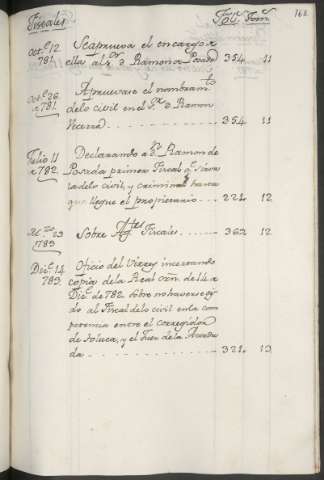 Fiscales
Fox. Tom.
162
Oct.e 12 781. Se aprueva el encargo
ella al S.or D. Ramon Posada 354. 11
Oct.e 26 781. Apruevase el nombram.to
delo civil en el S.or D. Ramon
354. 11
Julio 11 1782. Declarando a D. Ramon de
Posada primer Fiscal
delo civil, y criminal hasta
que llegue el proprietario 221. 12
23 1783 Sobre Ag.tes Fiscales 362. 12
Dic.e 14 783. Oficio del Virrey insertando
copia de la Real orn. de 14 de
Dic.e de 782. sobre no haverse
do al Fiscal delo civil en la com
petencia entre el corregidor
de Toluca, y el Juez de la Acorda
da 321. 13